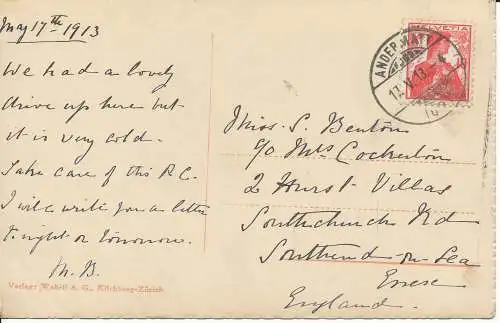 May 17th 1913
We had a lovely
drive up here but
it is very cold.
Take care of this P.C.
I will write you a letter
to-night or tomorrow.
M. B.
Verlag: Wehrli A. G., Kilchberg-Zürich
HELVETIA
ANDERMATT
17.V.13
Miss. S. Benton
c/o Mrs Cockerton
2 Hurst Villas
Southchurch Rd
Southend-on-Sea
Essex
England.